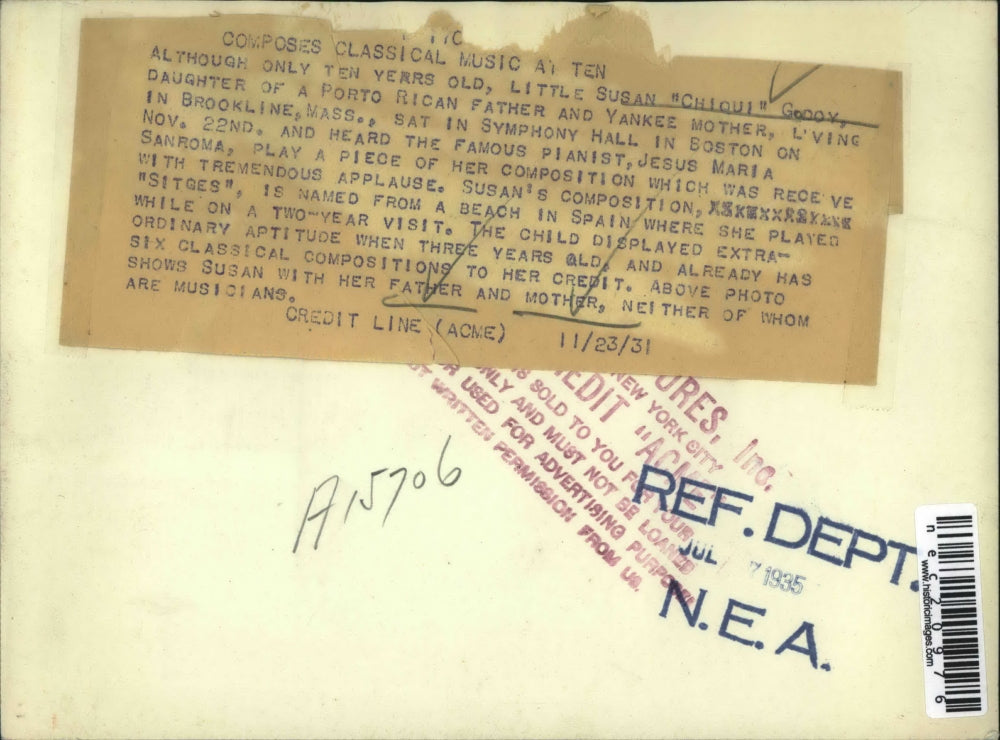 COMPOSES CLASSICAL MUSIC AT TEN
ALTHOUGH ONLY TEN YEARS OLD, LITTLE SUSAN "CHIQUI" GODOY,
DAUGHTER OF A PORTO RICAN FATHER AND YANKEE MOTHER, L'VING
IN BROOKLINE, MASS., SAT IN SYMPHONY HALL IN BOSTON ON
NOV. 22ND. AND HEARD THE FAMOUS PIANIST, JESUS MARIA
SANROMA, PLAY A PIECE OF HER COMPOSITION WHICH WAS RECE'VE
WITH TREMENDOUS APPLAUSE. SUSAN'S COMPOSITION,
"SITGES", IS NAMED FROM A BEACH IN SPAIN WHERE SHE PLAYED
WHILE ON A TWO-YEAR VISIT. THE CHILD DISPLAYED EXTRA-
ORDINARY APTITUDE WHEN THREE YEARS OLD, AND ALREADY HAS
SIX CLASSICAL COMPOSITIONS TO HER CREDIT. ABOVE PHOTO
SHOWS SUSAN WITH HER FATHER AND MOTHER, NEITHER OF WHOM
ARE MUSICIANS.
CREDIT LINE (ACME) 11/23/31
URES, Inc.
NEW YORK CITY
EDIT "ACME"
IS SOLD TO YOU FOR YOUR
NLY AND MUST NOT BE LOANED
R USED FOR ADVERTISING PURPOSES
T WRITTEN PERMISSION FROM US.
A15706
REF. DEPT.
JUL 7 1935
N.E.A.
nec20976
www.historicimages.com